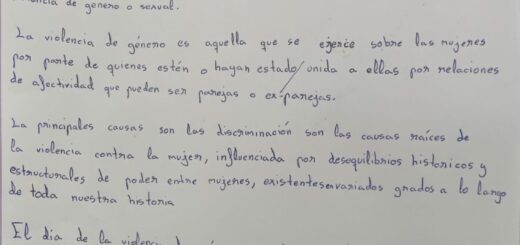 violencia de género o sexual.
La violencia de género es aquella que se ejerce sobre las mujeres
por parte de quienes estén o hayan estado/unida a ellas por relaciones
de afectividad que pueden ser parejas o ex-parejas.
La principales causas son las discriminación son las causas raíces de
la violencia contra la mujer, influenciada por desequilibrios historicos y
estructurales de poder entre mujeres, existentesenvariados grados a lo largo
de toda nuestra historia
El dia de la